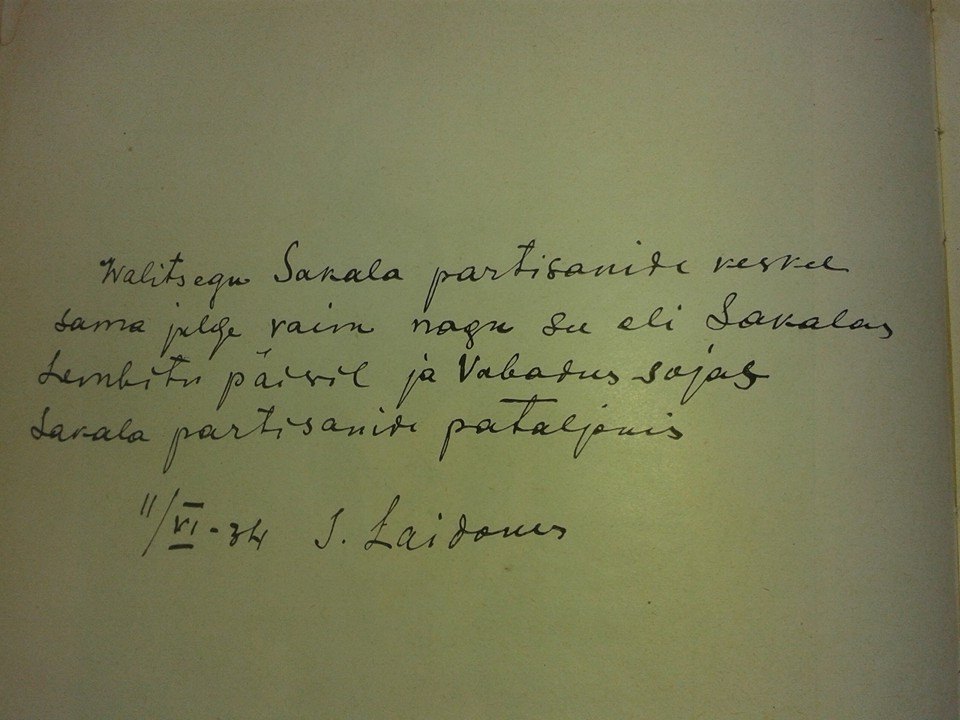 Walitsegu Sakala partisanide keskel
sama julge vaim nagu see oli Sakalas
Lembitu päivil ja Vabadussõjas
Sakala partisanide pataljonis
11/VI-34 J. Laidoner